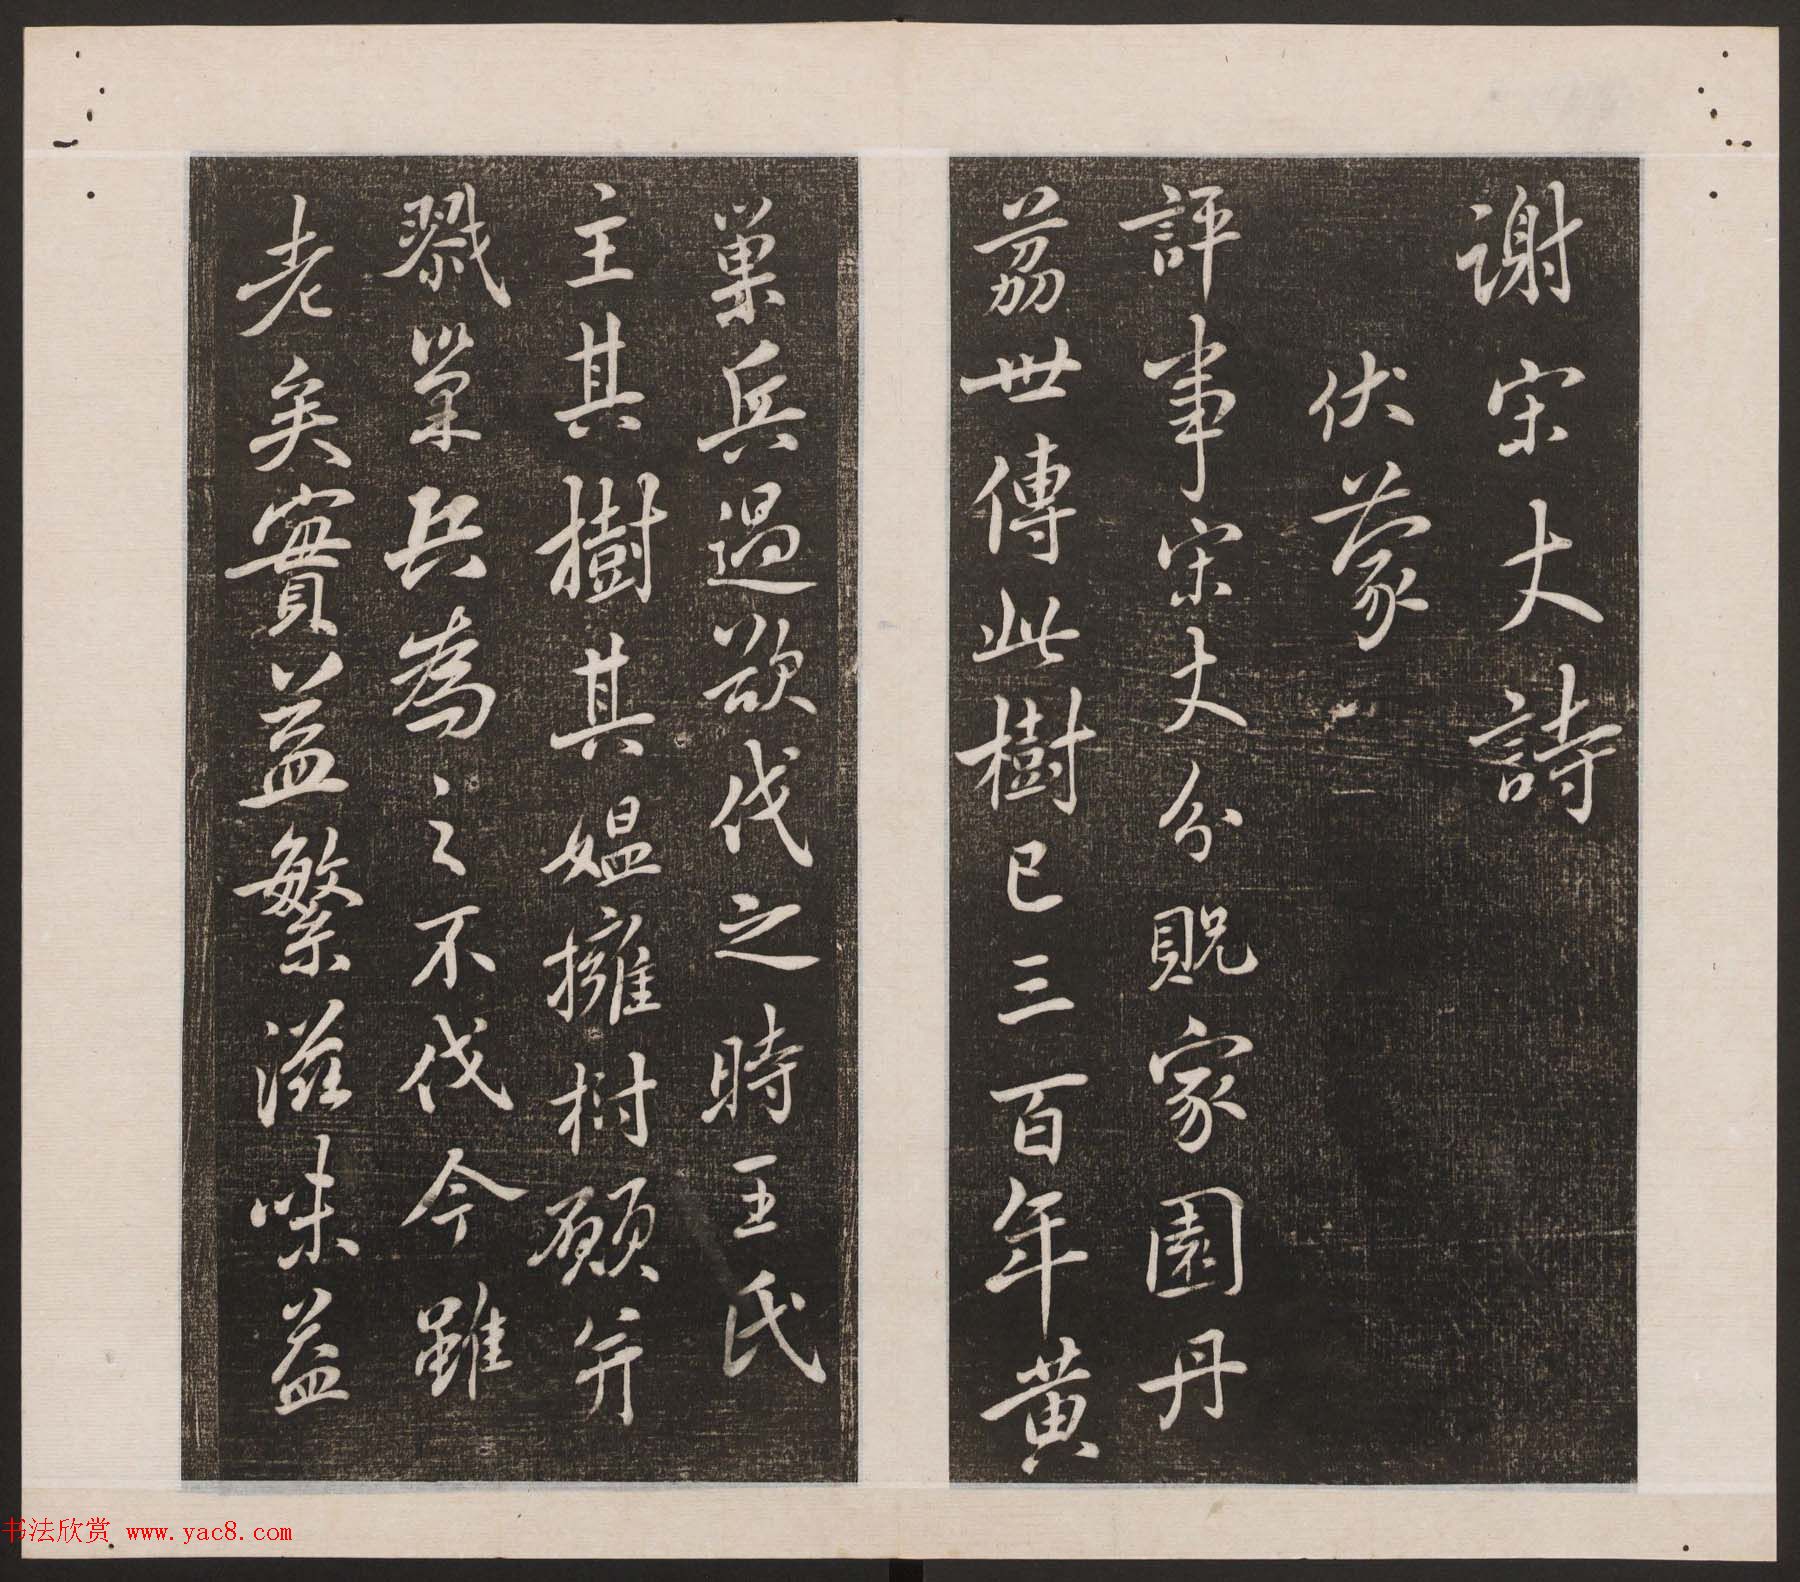 谢宋丈詩
伏蒙
評事宋丈分貺家園丹
荔世傳此樹已三百年黄
巢兵過欲伐之時王氏
主其樹其媪擁树願并
戮巢兵為之不伐今雖
老矣實益繁滋味益
书法欣赏 www.yac8.com